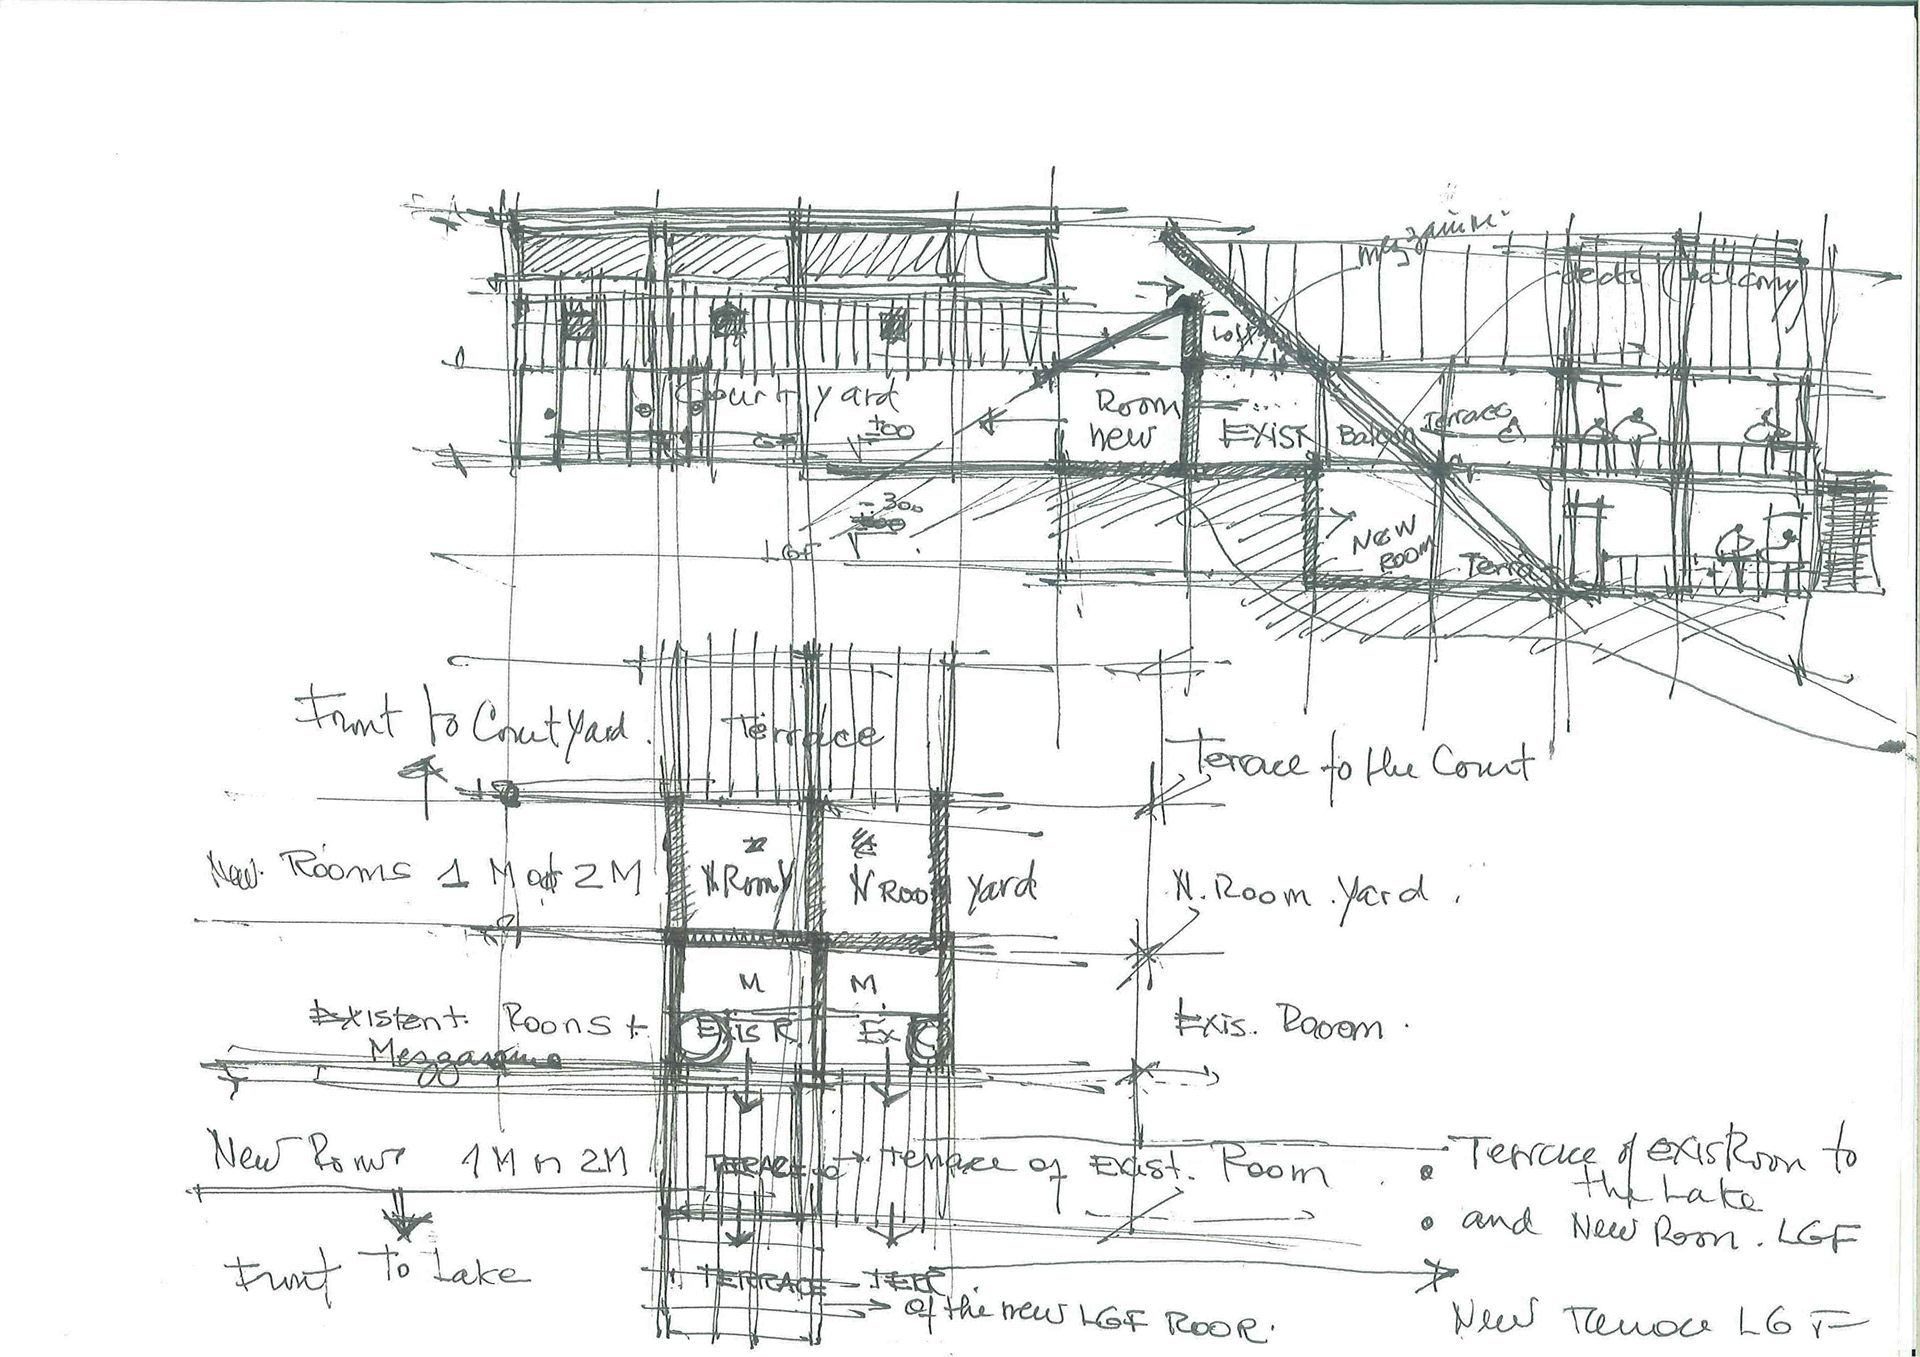 mezanine
(balcony)
Loft
Court yard
Room
new
EXIST
Balcon
Terrace
GF
±00
- 300
LGF
NEW
ROOM
Terrace
Front to CourtYard.
Terrace
Terrace to the Court
New Rooms 1 M or 2 M
N Room
N Room yard
N. Room . Yard .
M M
Existent Rooms +
Exis R. Ex
Exis. Rooom .
New Rooms 1M or 2M
TERRACE
terrace of Exist. Room
• Terrace of EXIS Room to
the Lake
• and New Room . LGF
Front To Lake
TERRACE - TERR
of the new LGF ROOR.
New Terrace LGF